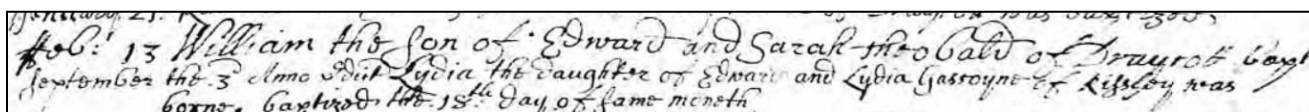 January 21. was baptized,
Feb: 13 William the Son of Edward and Sarah theobald of Draycott bapt
September the 3d Anno Lydia the daughter of Edward and Lydia Gascoyne of Risley was
borne. baptized the 18th day of same moneth